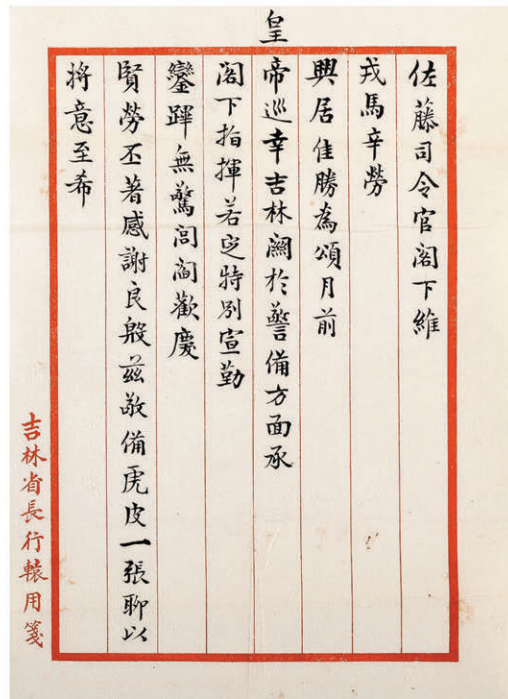 佐藤司令官閣下維
戎馬辛勞
興居佳勝為頌月前
皇
帝巡幸吉林關於警備方面承
閣下指揮若定特別宣勤
鑾蹕無驚閭閻歡慶
賢勞丕著感謝良殷茲敬備虎皮一張聊以
將意至希
吉林省長行轅用箋